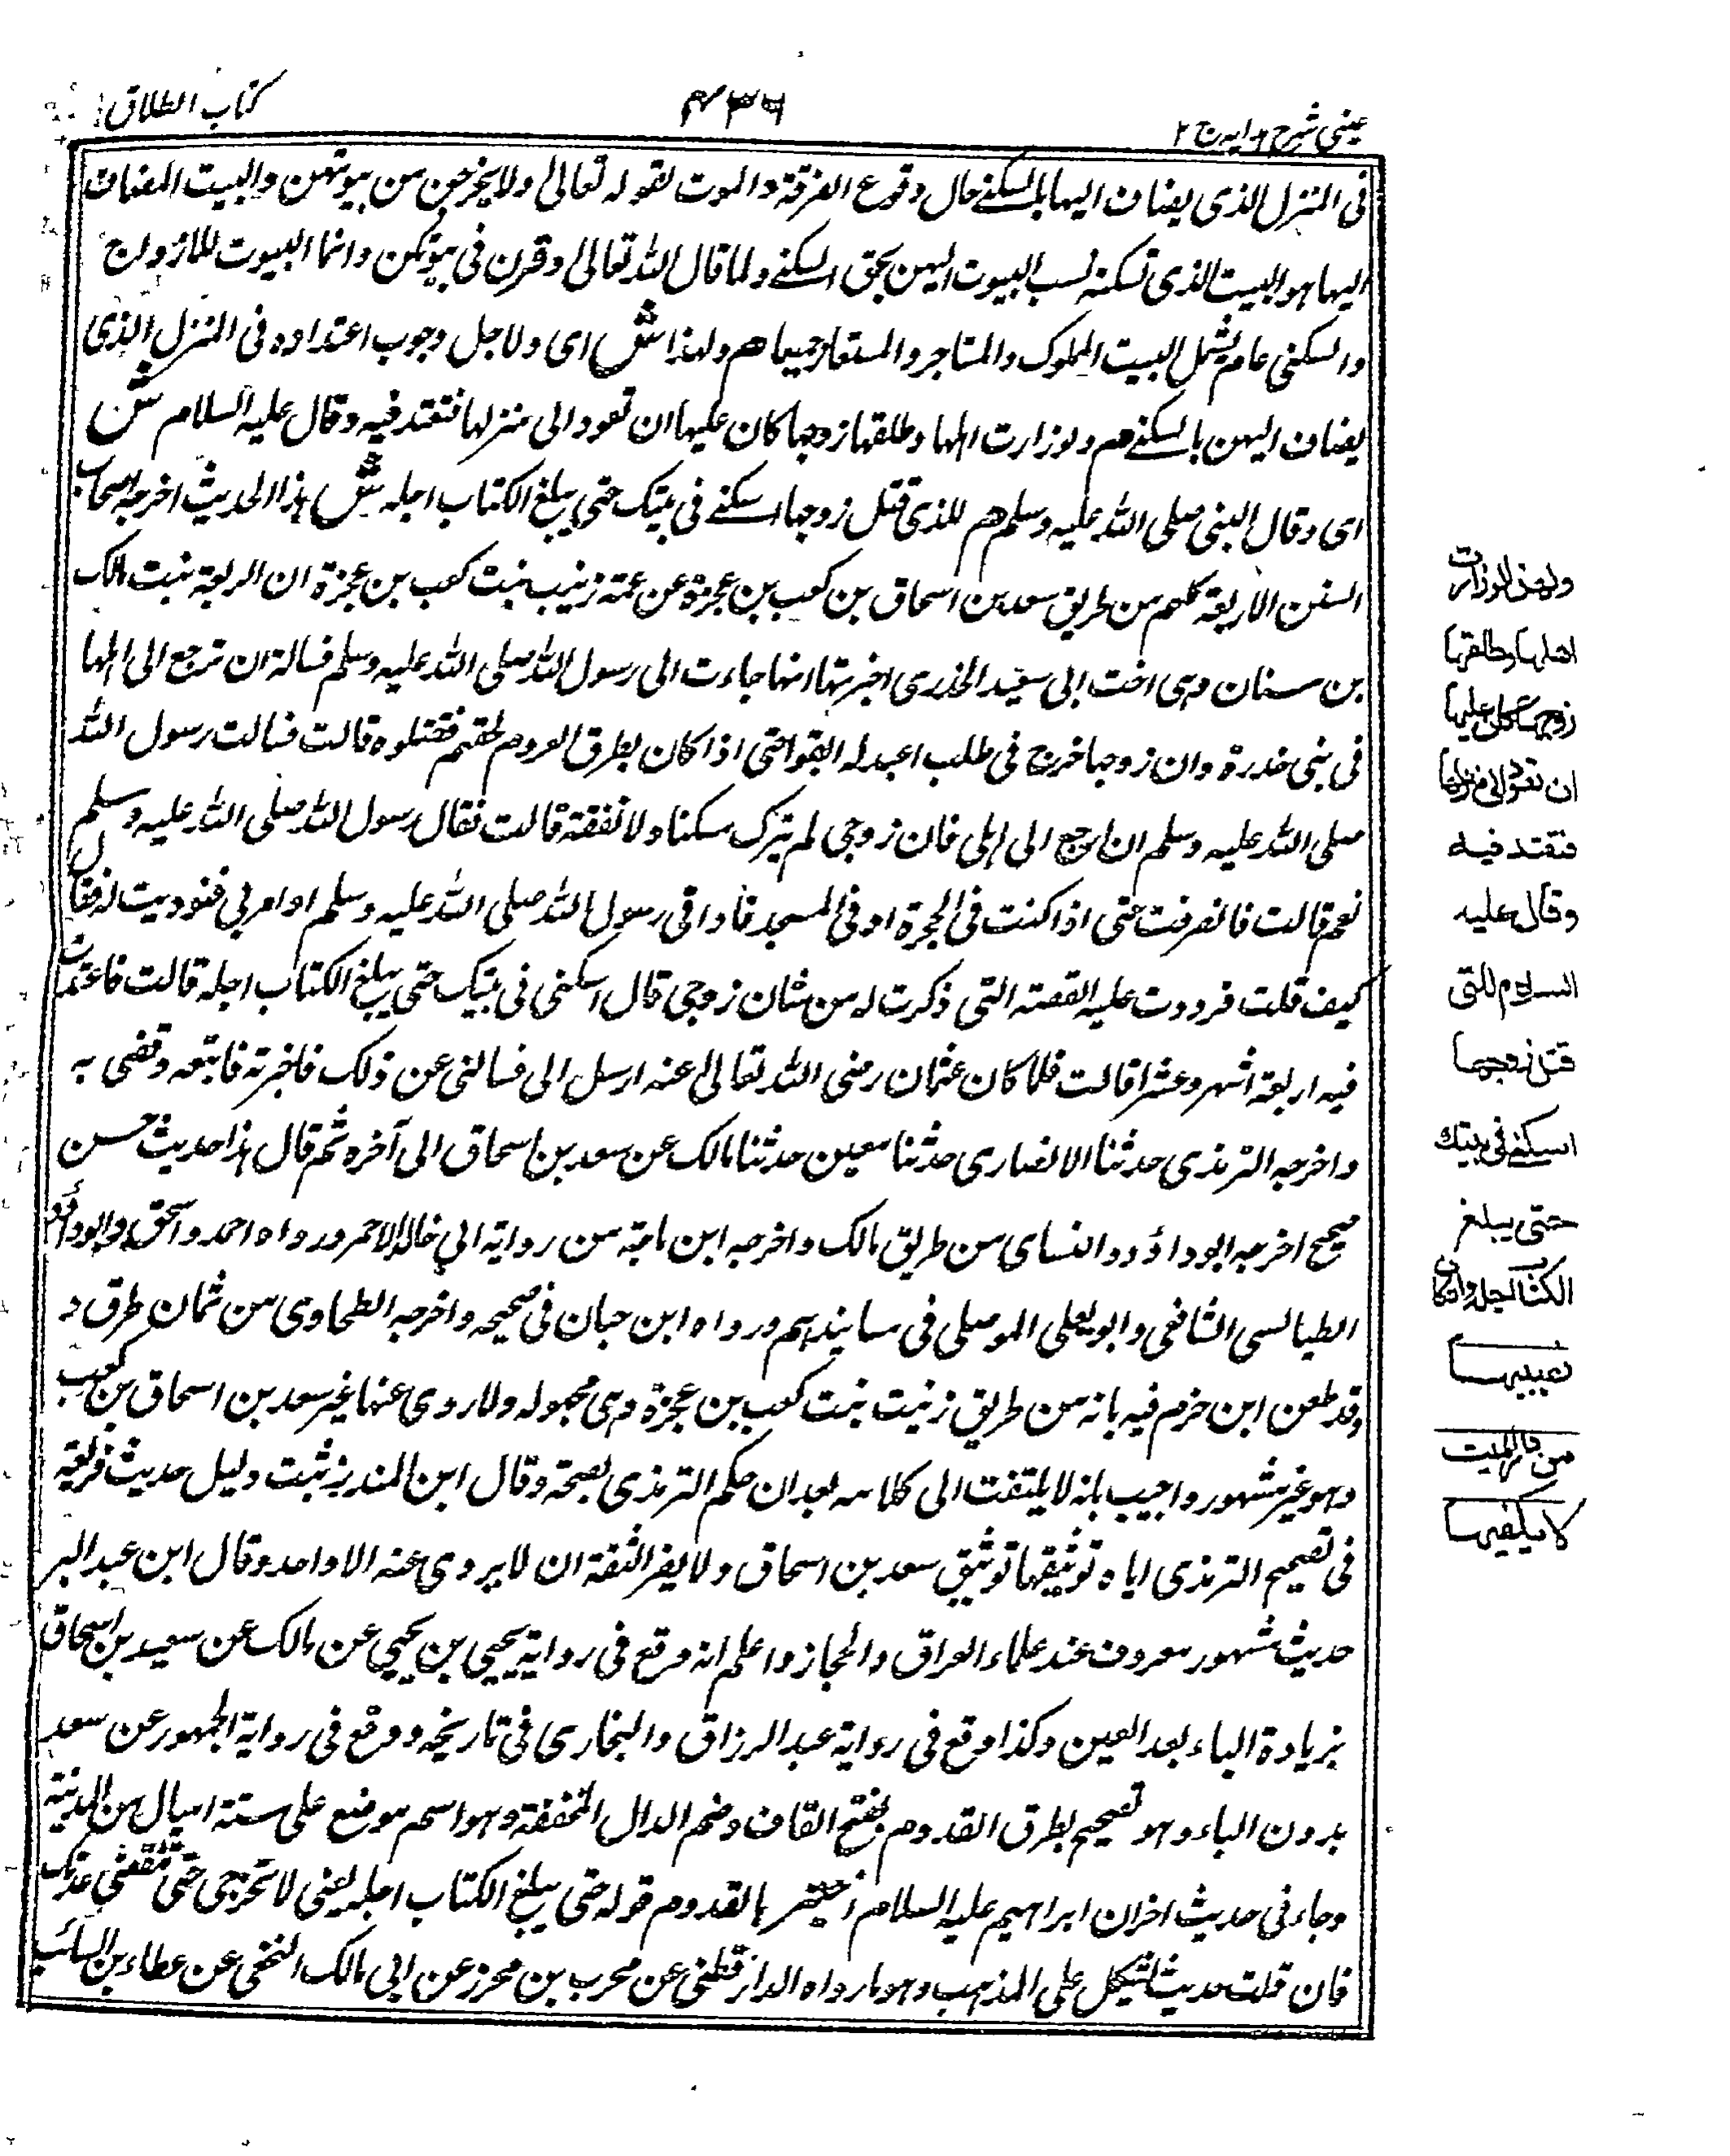 كتاب الطلاق
٤٣٦
عينى شرح هدايه ج ٢
فى المنزل الذى يضاف اليها بالسكنے حال وقوع الفرقة والموت لقوله تعالى ولا يخرجن من بيوتهن والبيت المضاف
اليها هو البيت الذى تسكنه نسب البيوت اليهن بحق السكنے ولما قال الله تعالى وقرن فى بيوتكن وانما البيوت للازواج
والسكنى عام يشمل البيت المملوك والمستاجر والمستعار جميعا هم ولهذا ش اى ولاجل وجوب اعتداده فى المنزل الذى
يضاف اليهن بالسكنے هم ولو زارت اهلها وطلقها زوجها كان عليها ان تعود الى منزلها فتعتد فيه وقال عليه السلام ش
اى وقال النبى صلى الله عليه وسلم هم للذى قتل زوجها اسكنے فى بيتك حتى يبلغ الكتاب اجله ش هذا الحديث اخرجه اصحاب
السنن الاربعة كلهم من طريق سعد بن اسحاق بن كعب بن عجرة عن عمته زينب بنت كعب بن عجزة ان الربعة بنت مالك
بن سنان وهى اخت ابى سعيد الخدرى اخبرتها انها جاءت الى رسول الله صلى الله عليه وسلم فسالته ان ترجع الى اهلها
فى بنى خدرة وان زوجها خرج فى طلب اعبد له ابقوا حتى اذا كان بطرق العروم لحقهم فقتلوه قالت فسالت رسول الله
صلى الله عليه وسلم ان ارجع الى اهلى فان زوجى لم يترك سكنا ولا نفقة قالت فقال رسول الله صلى الله عليه وسلم
نعم قالت فانصرفت حتى اذا كنت فى الحجرة او فى المسجد نادانى رسول الله صلى الله عليه وسلم او امر بى فنوديت له فقال
كيف قلت فرددت عليه القصة التى ذكرت له من شان زوجى قال اسكنى فى بيتك حتى يبلغ الكتاب اجله قالت فاعتددت
فيه اربعة اشهر وعشرا قالت فلما كان عثمان رضى الله تعالى عنه ارسل الى فسالنى عن ذلك فاخبرته فاتبعه وقضى به
واخرجه الترمذى حدثنا الانصارى حدثنا معين حدثنا مالك عن سعد بن اسحاق الى آخره ثم قال هذا حديث حسن
صحيح اخرجه ابوداؤد والنساى من طريق مالك واخرجه ابن ماجة من رواية ابي خالد الاحمر ورواه احمد واسحق وابوداؤد
الطيالسى الشافعى وابو يعلى الموصلى فى مسانيدهم ورواه ابن حبان فى صحيحه واخرجه الطحاوى من ثمان طرق و
وقد طعن ابن حزم فيه بانه من طريق زنيت بنت كعب بن عجزة وهى مجهوله ولا روى عنها غير سعد بن اسحاق بن كعب
وهو غير مشهور واجيب بانه لا يلتفت الى كلامه بعد ان حكم الترمذى بصحة وقال ابن المنذر يثبت دليل حديث فريعة
فى تصحيح الترمذى اياه توثيقها توثيق سعد بن اسحاق ولا يضر الثقة ان لا يروى عنه الا واحد وقال ابن عبد البر
حديث مشهور معروف عند علماء العراق والحجاز واعلم انه وقع فى رواية يحيى بن يحيى عن مالك عن سعيد بن اسحاق
بزيادة الياء بعد العين وكذا وقع فى رواية عبد الرزاق والبخارى فى تاريخه ووقع فى رواية الجمهور عن سعد
بدون الياء وهو تصحيح بطرق القدوم بفتح القاف وضم الدال المخففة وهو اسم موضع على ستة اميال من المدينة
وجاء فى حديث اخر ان ابراهيم عليه السلام اختتن بالقدوم قوله حتى يبلغ الكتاب اجله يعنى لا تخرجى حتى تنقضى عدتك
فان قلت حديث يشكل على المذهب وهو ما رواه الدارقطنى عن محرب بن محرز عن ابى مالك النخعى عن عطاء بن السائب
ولهذا لو زارت
اهلها وطلقها
زوجها كان عليها
ان تعود الى منزلها
فتعتد فيه
وقال عليه
السلام للتى
قتل زوجها
اسكنے فى بيتك
حتى يبلغ
الكتاب اجله وان كان
نصيبها
من دار الميت
لا يكفيها